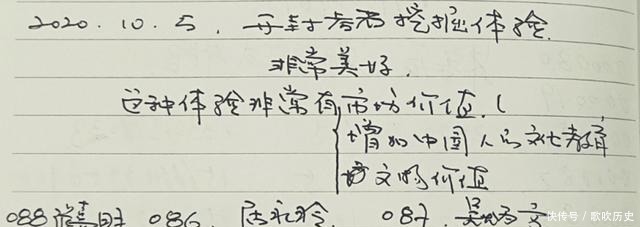 2020.10.5, 考古挖掘体验
非常美好.
这种体验非常有市场价值.(
增加中国人的文化教育
文物价值
088 086. 087.
快传号/歌吹历史